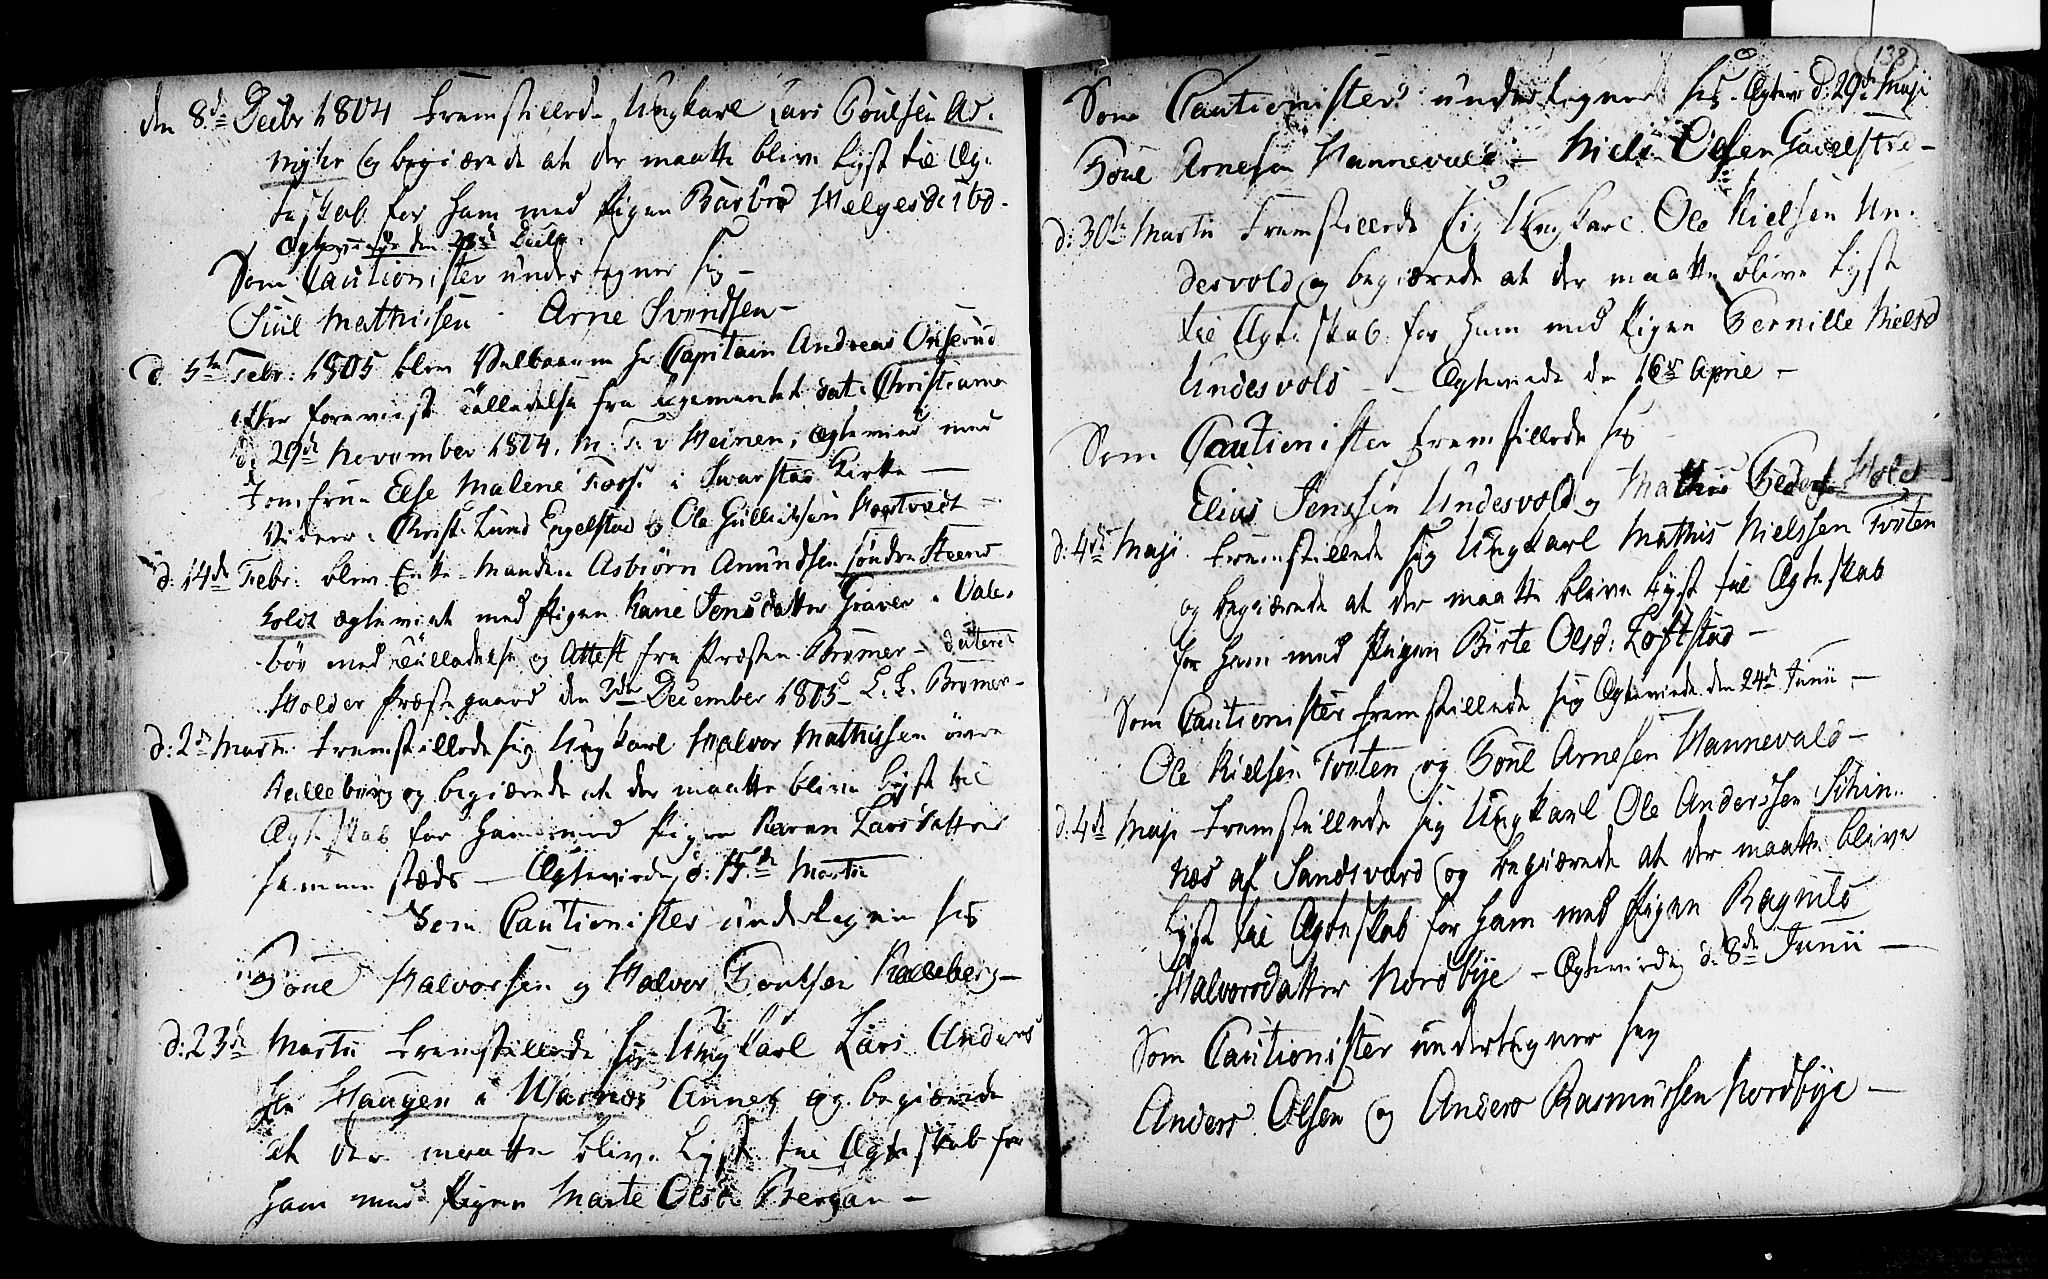 den 8de Decbr 1804 Fremstillede Ungkarl Lars Poulsen As-
myhr og begiærede at der maatte blive lyst til Æg-
teskab for ham med Pigen Barbro Helgesd: ibd.
Ægteviede den 28de Decbr.
Som Cautionister undertegner sig –
Juul Mathissen – Arne Svendsen –
d. 5te Febr: 1805 blev Velbaarne Hr Capitain Andreas
efter foreviist Tilladelse fra Regementet dat: Christiania
d: 29de November 1804. v Heinen, ægteviet med
Jomfrue Else Malene i Svarstad Kirke –
Vidner: Christ: Lund Engelstad og Ole Gulliksen
d. 14de Febr: blev Enke Manden Asbiørn Amundsen søndre Steens-
holt ægteviet med Pigen Karie Jensdatter Graver i Vale-
bøe med Tilladelse og Attest fra Præsten Bremer – dateret
Holdes Præstegaard den 3de December 1805 Bremer –
d: 2de Martii Fremstillede sig Ungkarl Halvor Mathissen øvre
Kalleberg og begiærede at der maatte blive lyst til
Ægteskab for ham med Pigen Karen Larsdatter
sammestæds – Ægteviede d: 15de Martii
Som Cautionister undertegner sig
Poul Halvorsen og Halvor Poulsen Kalleberg –
d: 23de Martii Fremstillede sig Ungkarl Lars Anders
sen Haugen i Warnæs Annex og begiærede
at der maatte blive lyst til Ægteskab for
ham med Pigen Marte Olsd: Bergan –
138
Som Cautionister undertegner sig. Ægtev: d: 29de Maji
Poul Arnesen Hannevald – Niels Olsen Gavelstad –
d: 30te Martii Fremstillede sig Ungkarl Ole Nielsen Un-
desvold og begiærede at der maatte blive lyst
til Ægteskab for ham med Pigen Pernille Nielsd
Undesvold – – Ægteviede den 16de April –
Som Cautionister Fremstillede sig
Elias Jenssen Undesvold og Mathis Peders. Holt
d: 4de Maji Fremstillede sig Ungkarl Mathis Nielssen Tveten
og begiærede at der maatte blive lyst til Ægteskab
for ham med Pigen Birte Olsd: Løfstad –
Som Cautionister fremstillede sig Ægteviede den 24de Junii –
Ole Nielsen Tveten og Poul Arnesen Hannevald –
d: 4de Maji Fremstillede sig Ungkarl Ole Anderssen Schin-
næs af Sandsværd og begiærede at der maatte blive
lyst til Ægteskab for ham med Pigen Ragnild
Halvorsdatter Nordbye – Ægteviede d: 8de Junii –
Som Cautionister undertegner sig
Anders Olsen og Anders Rasmussen Nordbye –